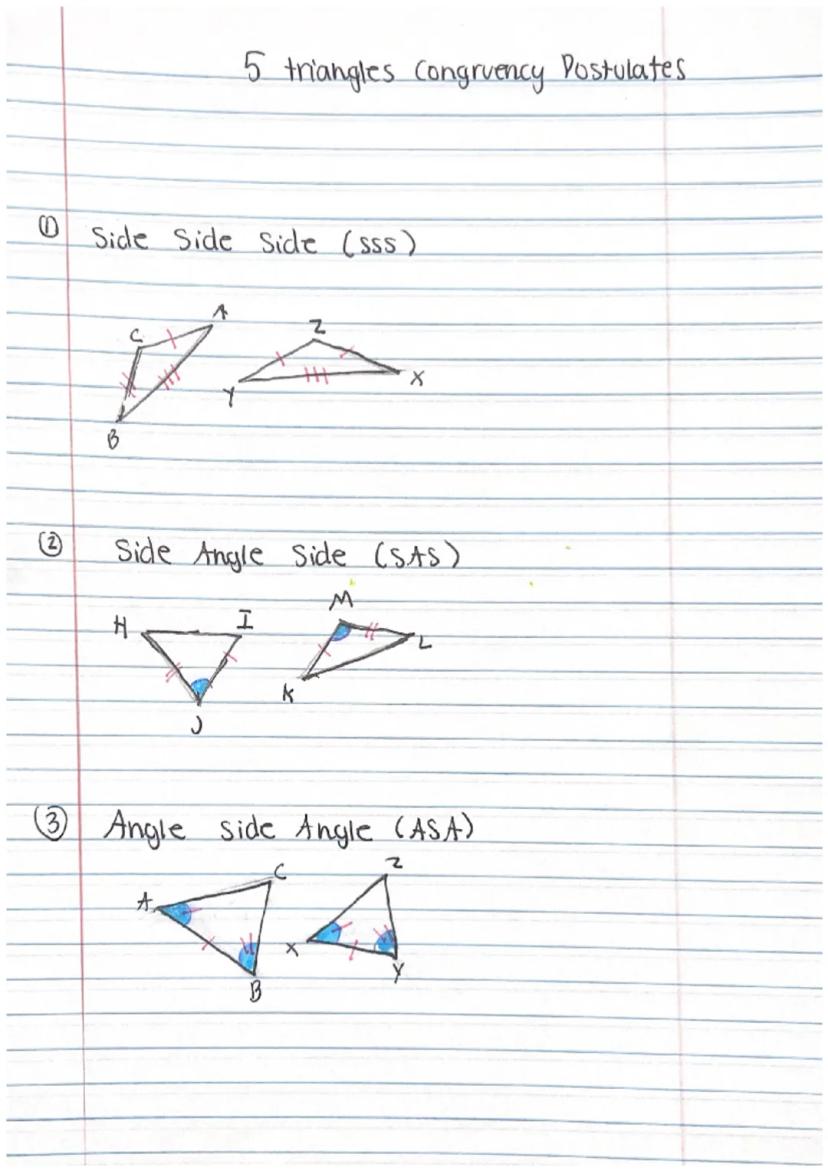 5 triangles Congruency Postulates
① Side Side Side (SSS)
A
C Z
Y X
B
② Side Angle Side (SAS)
M
H I
L
K
J
③ Angle side Angle (ASA)
C Z
A
X
Y
B